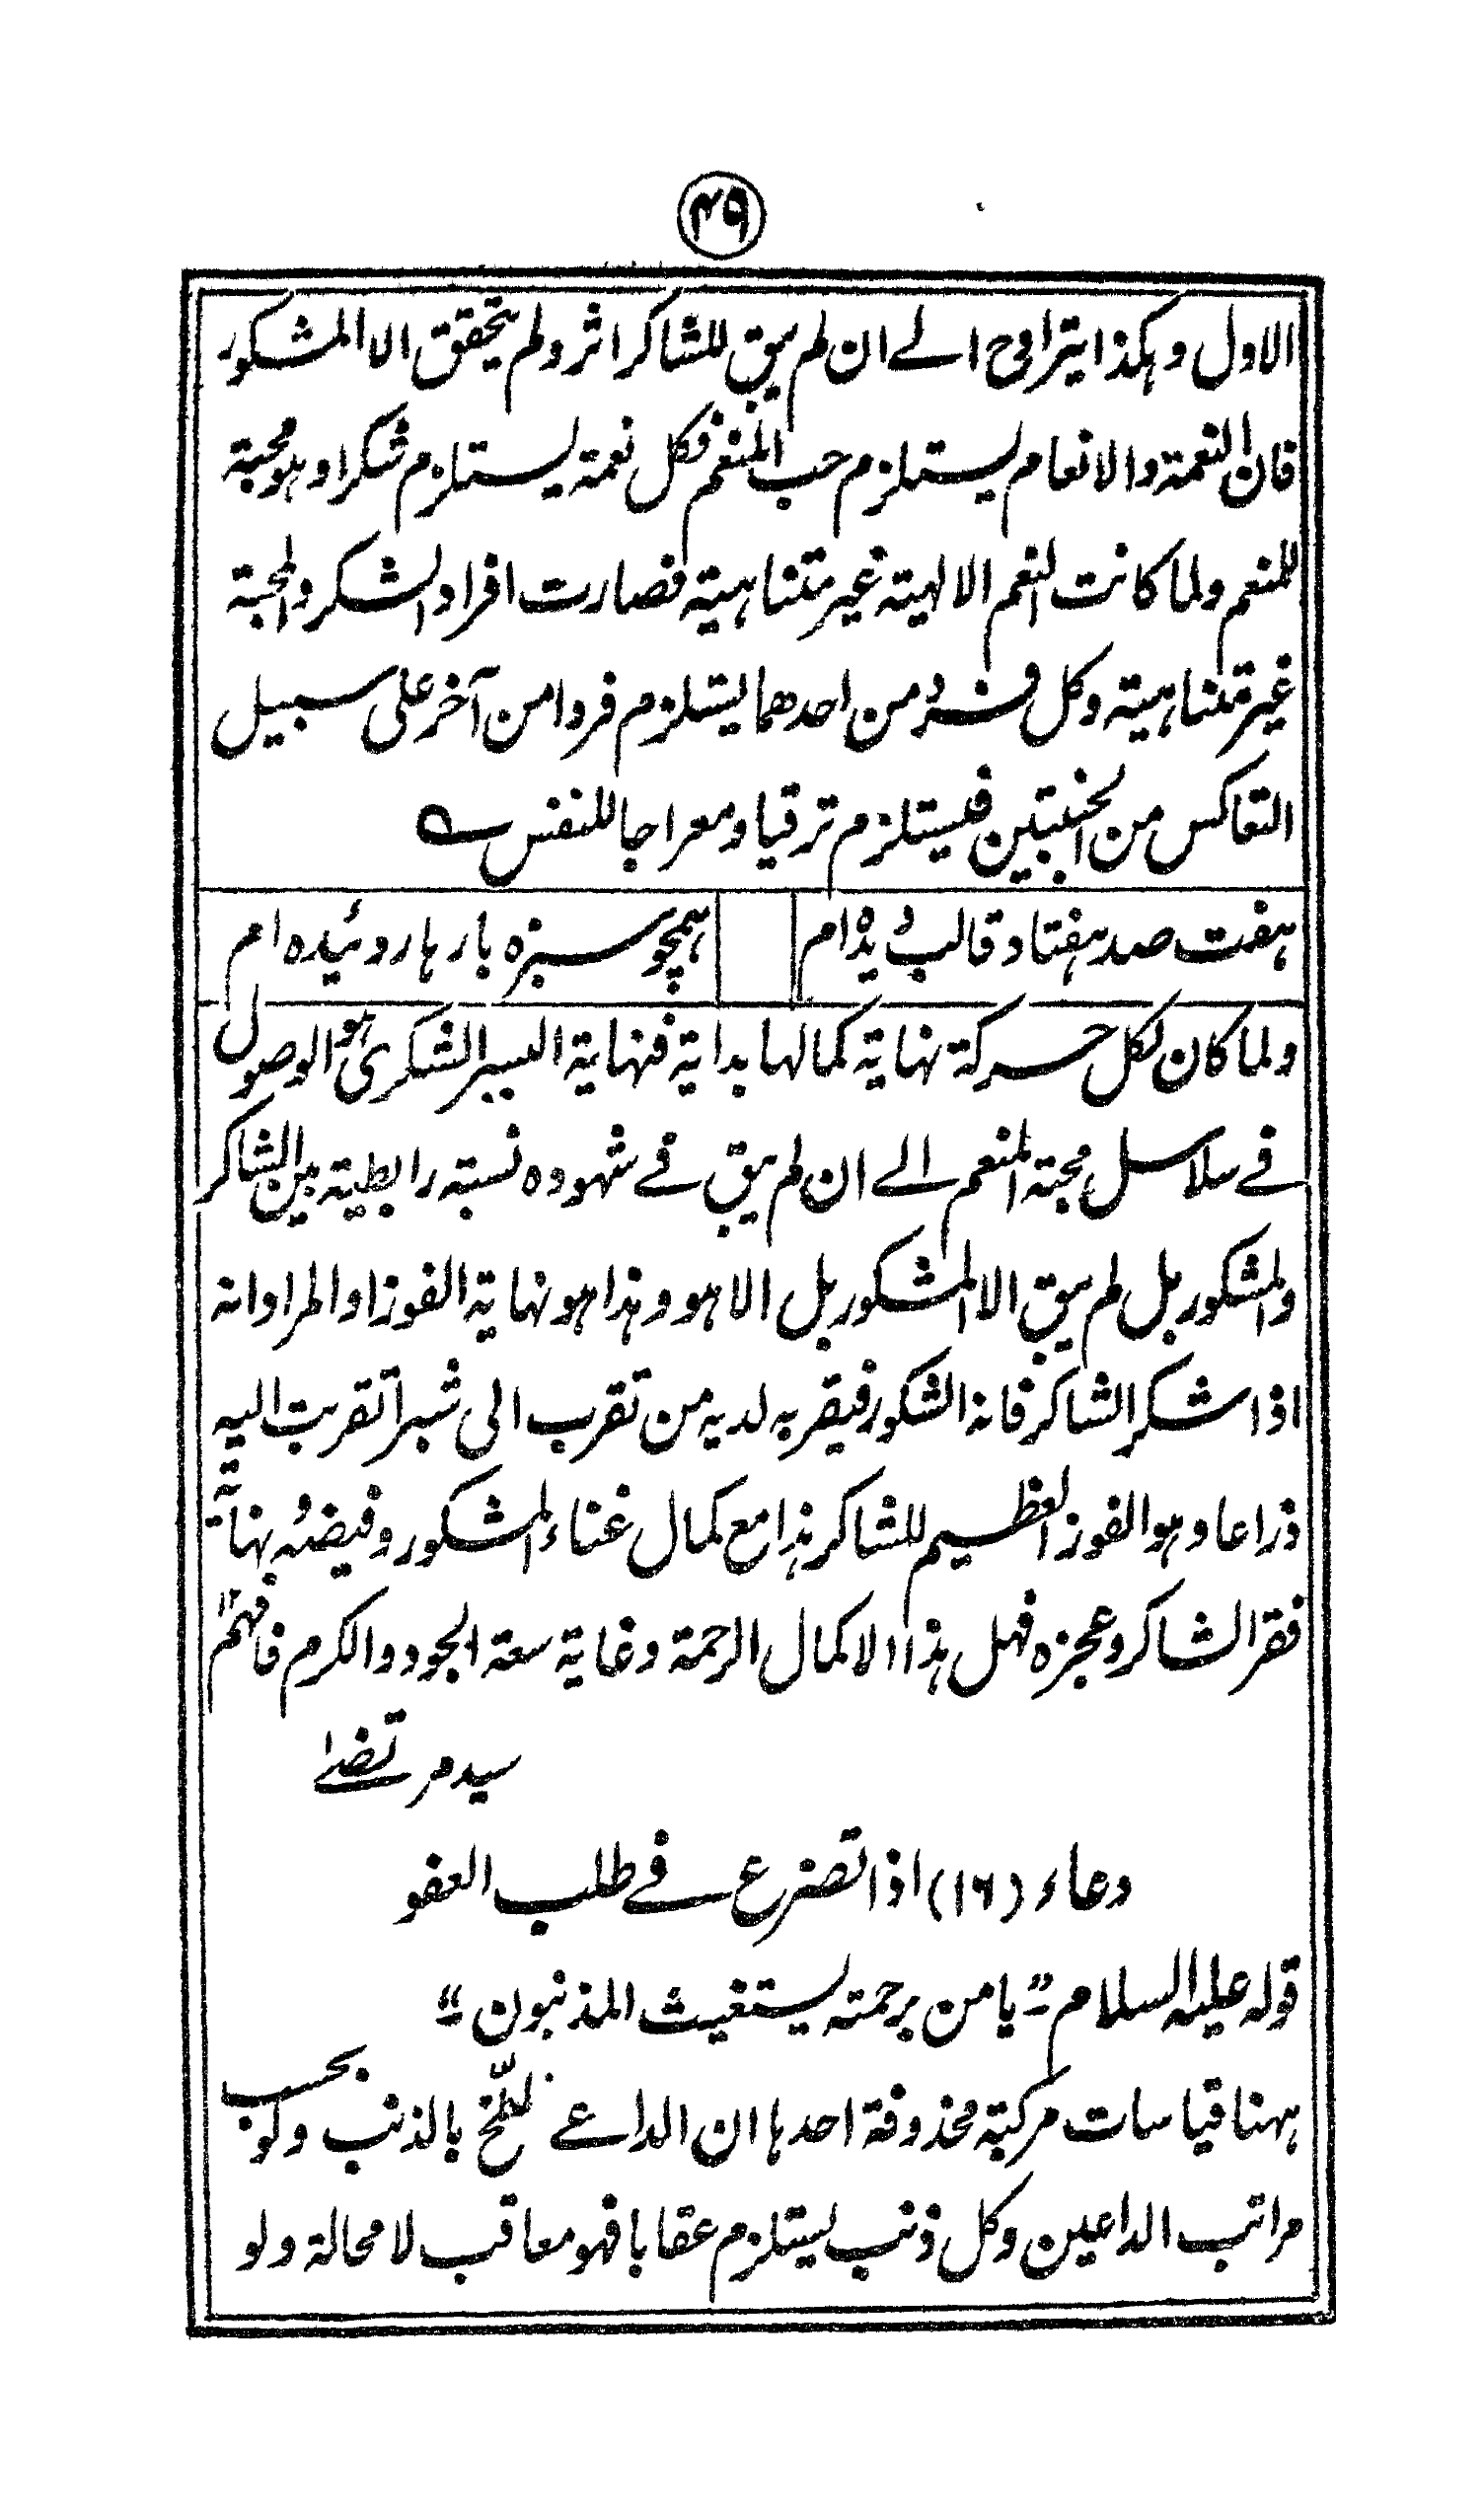 ۴۹
الاول وہکذا یتراقی الے ان لم یبق للشاکر اثر ولم یتحقق الا المشکور
فان النعمۃ والانعام یستلزم حب المنعم فکل نعمۃ یستلزم شکرا وہو محبۃ
للمنعم ولما کانت النعم الالہیۃ غیر متناہیۃ فصارت افراد الشکر والمحبۃ
غیر متناہیۃ وکل فرد من احدھما یستلزم فردا من آخر علی سبیل
التعاکس من الجنبتین فیستلزم ترقیا ومعراجا للنفس ؎
ہفت صد ہفتاد قالب دیدہ ام ہمچو سبزہ بارہا روئیدہ ام
ولما کان لکل حرکۃ نہایۃ کما لہا بدایۃ فنہایۃ السیر الشکری ہو الوصول
فے سلاسل محبۃ المنعم الے ان لم یبق فے شہودہ نسبۃ رابطیۃ بین الشاکر
والمشکور بل لم یبق الا المشکور بل الا ہو وہذا ہو نہایۃ الفوز او المراد انہ
اذا شکر الشاکر فانہ الشکور فیقربہ لدیہ من تقرب الی شبرا تقربت الیہ
ذراعا وہو الفوز العظیم للشاکر ہذا مع کمال غناء المشکور وفیضہ نہایۃ
فقر الشاکر وعجزہ فہل ہذا الا کمال الرحمۃ وغایۃ سعۃ الجود والکرم فافہم"
سید مرتضے
دعاء (۱۶) اذا تضرع فے طلب العفو
قولہ علیہ السلام "یا من برحمتہ یستغیث المذنبون"
ہہنا قیاسات مرکبۃ محذوفۃ احدہا ان الداعے بالذنب ولو بحسب
مراتب الداعین وکل ذنب یستلزم عقابا فہو معاقب لا محالۃ ولو